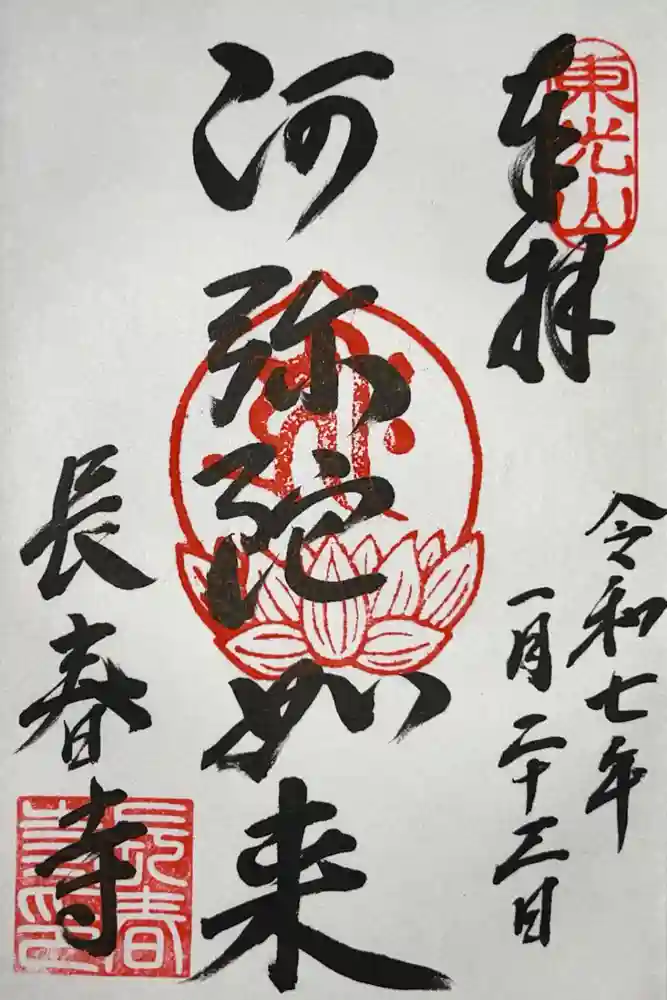 奉拝
東光山
令和七年
一月二十三日
阿弥陀如来
長春寺